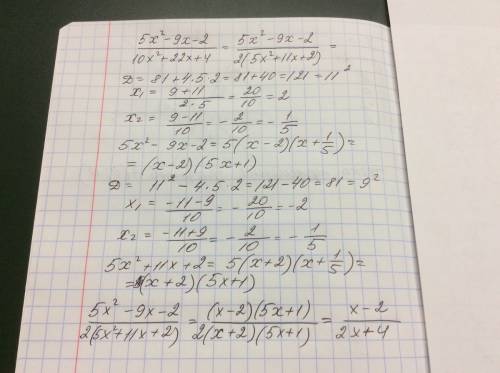 (5x²-9x-2)/(10x²+22x+4) = (5x²-9x-2)/(2(5x²+11x+2)) =
D = 81+4·5·2 = 81+40 = 121 = 11²
x₁ = (9+11)/(2·5) = 20/10 = 2
x₂ = (9-11)/10 = -2/10 = -1/5
5x²-9x-2 = 5(x-2)(x+1/5) =
= (x-2)(5x+1)
D = 11²-4·5·2 = 121-40 = 81 = 9²
x₁ = (-11-9)/10 = -20/10 = -2
x₂ = (-11+9)/10 = -2/10 = -1/5
5x²+11x+2 = 5(x+2)(x+1/5) =
= (x+2)(5x+1)
(5x²-9x-2)/(2(5x²+11x+2)) = ((x-2)(5x+1))/(2(x+2)(5x+1)) = (x-2)/(2x+4)